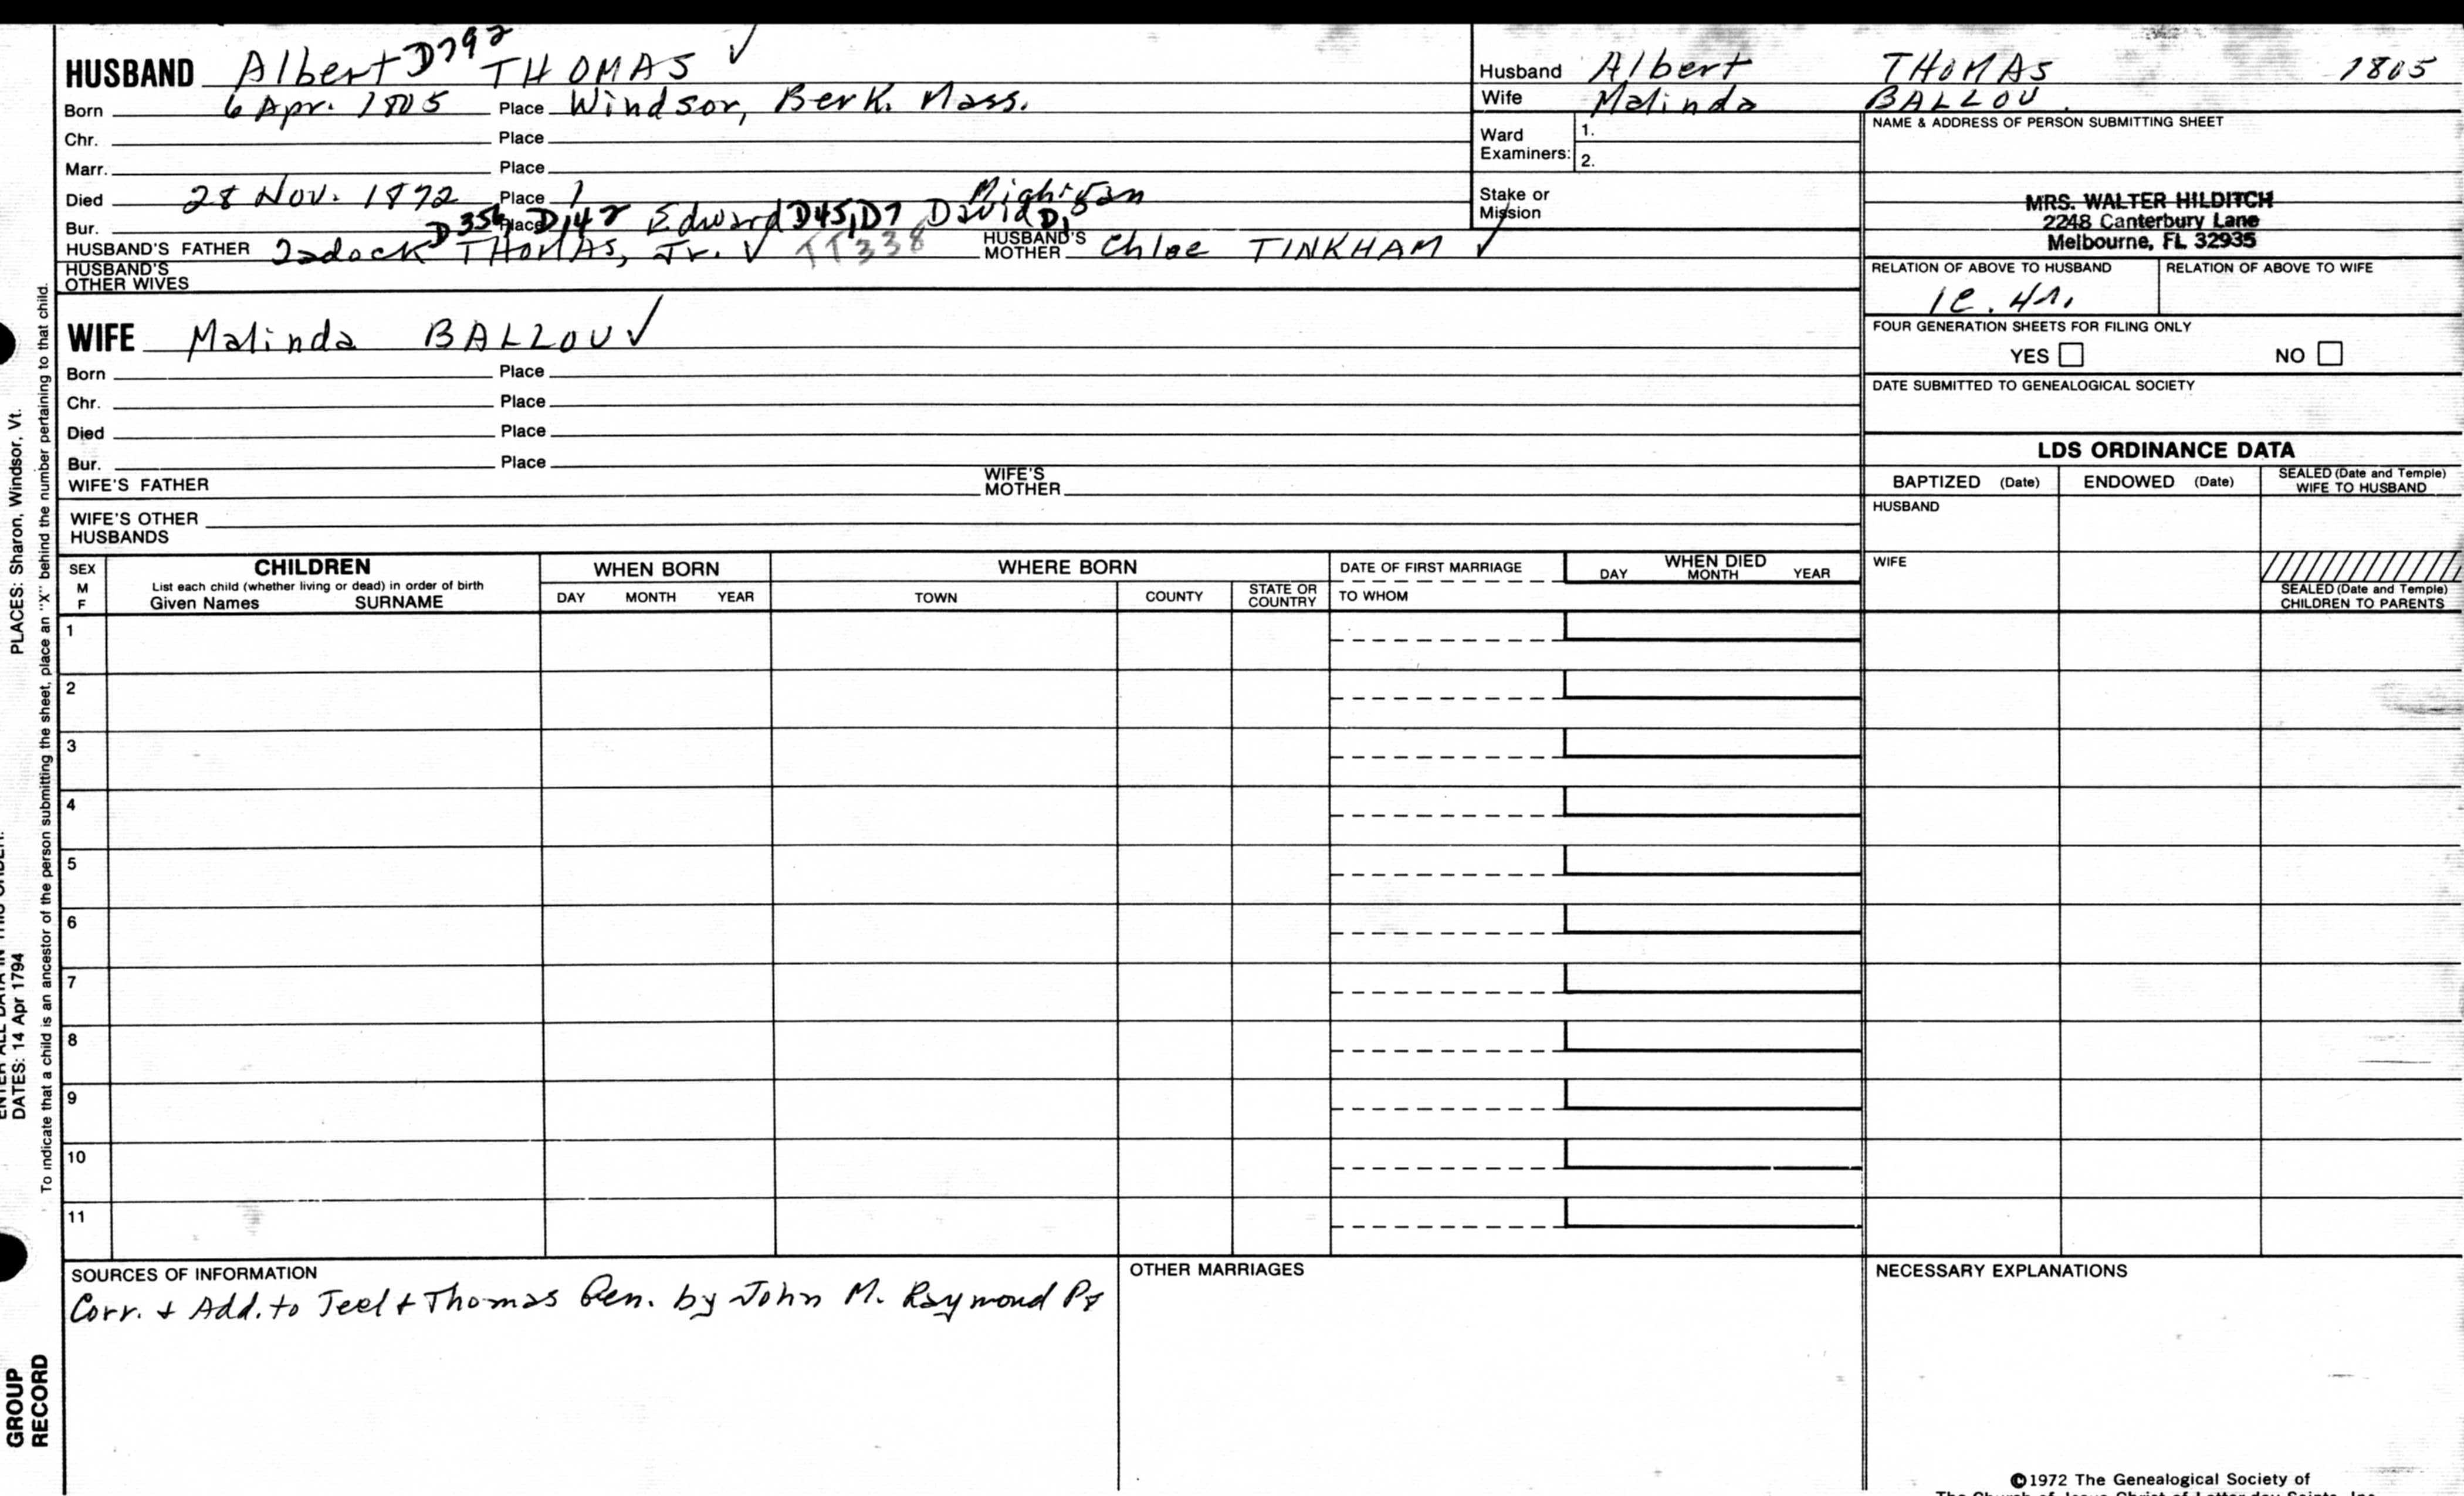 HUSBAND Albert D792 THOMAS ✓
Born 6 Apr. 1805 Place Windsor, Berk. Mass.
Chr. Place
Marr. Place
Died 28 Nov. 1872 Place Michigan
Bur. Place D356, D142 Edward D45, D7 David D1
HUSBAND'S FATHER Zadock THOMAS, Jr. ✓ TT338 HUSBAND'S MOTHER Chloe TINKHAM ✓
HUSBAND'S OTHER WIVES
WIFE Malinda BALLOU ✓
Born Place
Chr. Place
Died Place
Bur. Place
WIFE'S FATHER WIFE'S MOTHER
WIFE'S OTHER HUSBANDS
Husband Albert THOMAS 1805
Wife Malinda BALLOU
Ward Examiners: 1.
2.
Stake or Mission
NAME & ADDRESS OF PERSON SUBMITTING SHEET
MRS. WALTER HILDITCH
2248 Canterbury Lane
Melbourne, FL 32935
RELATION OF ABOVE TO HUSBAND RELATION OF ABOVE TO WIFE
FOUR GENERATION SHEETS FOR FILING ONLY
YES NO
DATE SUBMITTED TO GENEALOGICAL SOCIETY
LDS ORDINANCE DATA
BAPTIZED (Date) ENDOWED (Date) SEALED (Date and Temple) WIFE TO HUSBAND
HUSBAND
WIFE
SEALED (Date and Temple) CHILDREN TO PARENTS
SEX M F
CHILDREN
List each child (whether living or dead) in order of birth
Given Names SURNAME
WHEN BORN
DAY MONTH YEAR
WHERE BORN
TOWN COUNTY STATE OR COUNTRY
DATE OF FIRST MARRIAGE
TO WHOM
WHEN DIED
DAY MONTH YEAR
1
2
3
4
5
6
7
8
9
10
11
SOURCES OF INFORMATION
Corr. + Add. to Teel + Thomas Gen. by John M. Raymond
OTHER MARRIAGES
NECESSARY EXPLANATIONS
©1972 The Genealogical Society of
The Church of Jesus Christ of Latter-day Saints, Inc.
PLACES: Sharon, Windsor, Vt.
To indicate that a child is an ancestor of the person submitting the sheet, place an "X" behind the number pertaining to that child.
ENTER ALL DATA IN THIS ORDER:
DATES: 14 Apr 1794
GROUP
RECORD